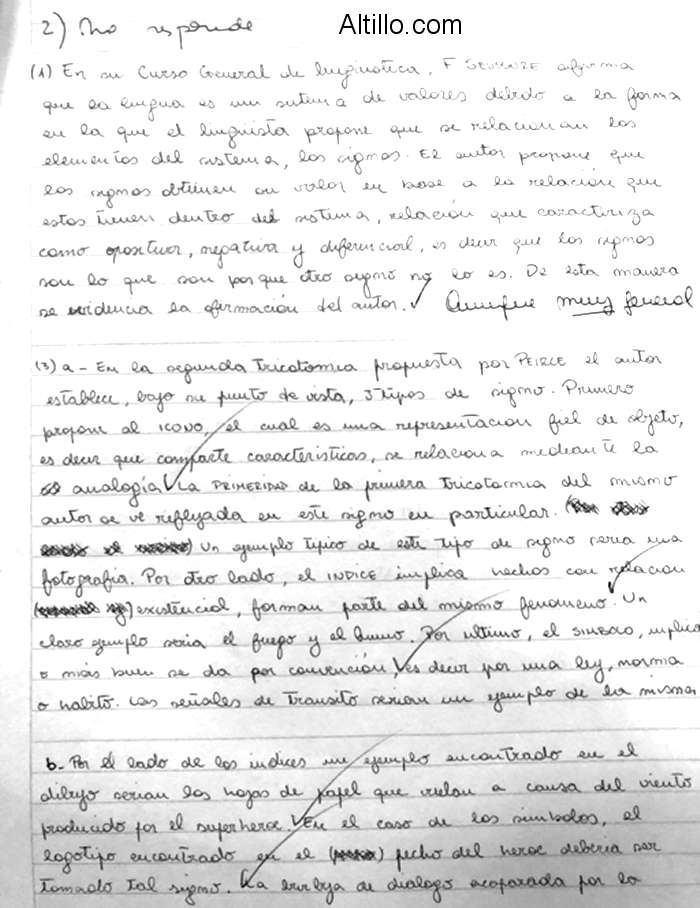 Altillo.com
2) No responde
(1) En su Curso General de lingüística, F SAUSSURE afirma
que la lengua es un sistema de valores debido a la forma
en la que el lingüista propone que se relacionan los
elementos del sistema, los signos. El autor propone que
los signos obtienen su valor en base a la relación que
estos tienen dentro del sistema, relación que caracteriza
como opositiva, negativa y diferencial, es decir que los signos
son lo que son porque otro signo no lo es. De esta manera
se evidencia la afirmación del autor. ✓ Aunque muy general
(3) a - En la segunda tricotomia propuesta por PEIRCE el autor
establece, bajo su punto de vista, 3 tipos de signo. Primero
propone al ICONO, el cual es una representación fiel de objeto,
es decir que comparte características, se relaciona mediante la
analogía. La PRIMERIDAD de la primera tricotomia del mismo
autor se ve reflejada en este signo en particular.
Un ejemplo típico de este tipo de signo seria una
fotografia. Por otro lado, el INDICE implica hechos con relacion
existencial, forman parte del mismo fenomeno. Un
claro ejemplo seria el fuego y el humo. Por ultimo, el SIMBOLO, implica
o más bien se da por convención, es decir por una ley, norma
o habito. Las señales de transito serian un ejemplo de la misma
b- Por el lado de los indices un ejemplo encontrado en el
dibujo serian las hojas de papel que vuelan a causa del viento
producido por el superheroe. En el caso de los simbolos, el
logotipo encontrado en el pecho del heroe deberia ser
tomado tal signo. La burbuja de dialogo acoparada por lo